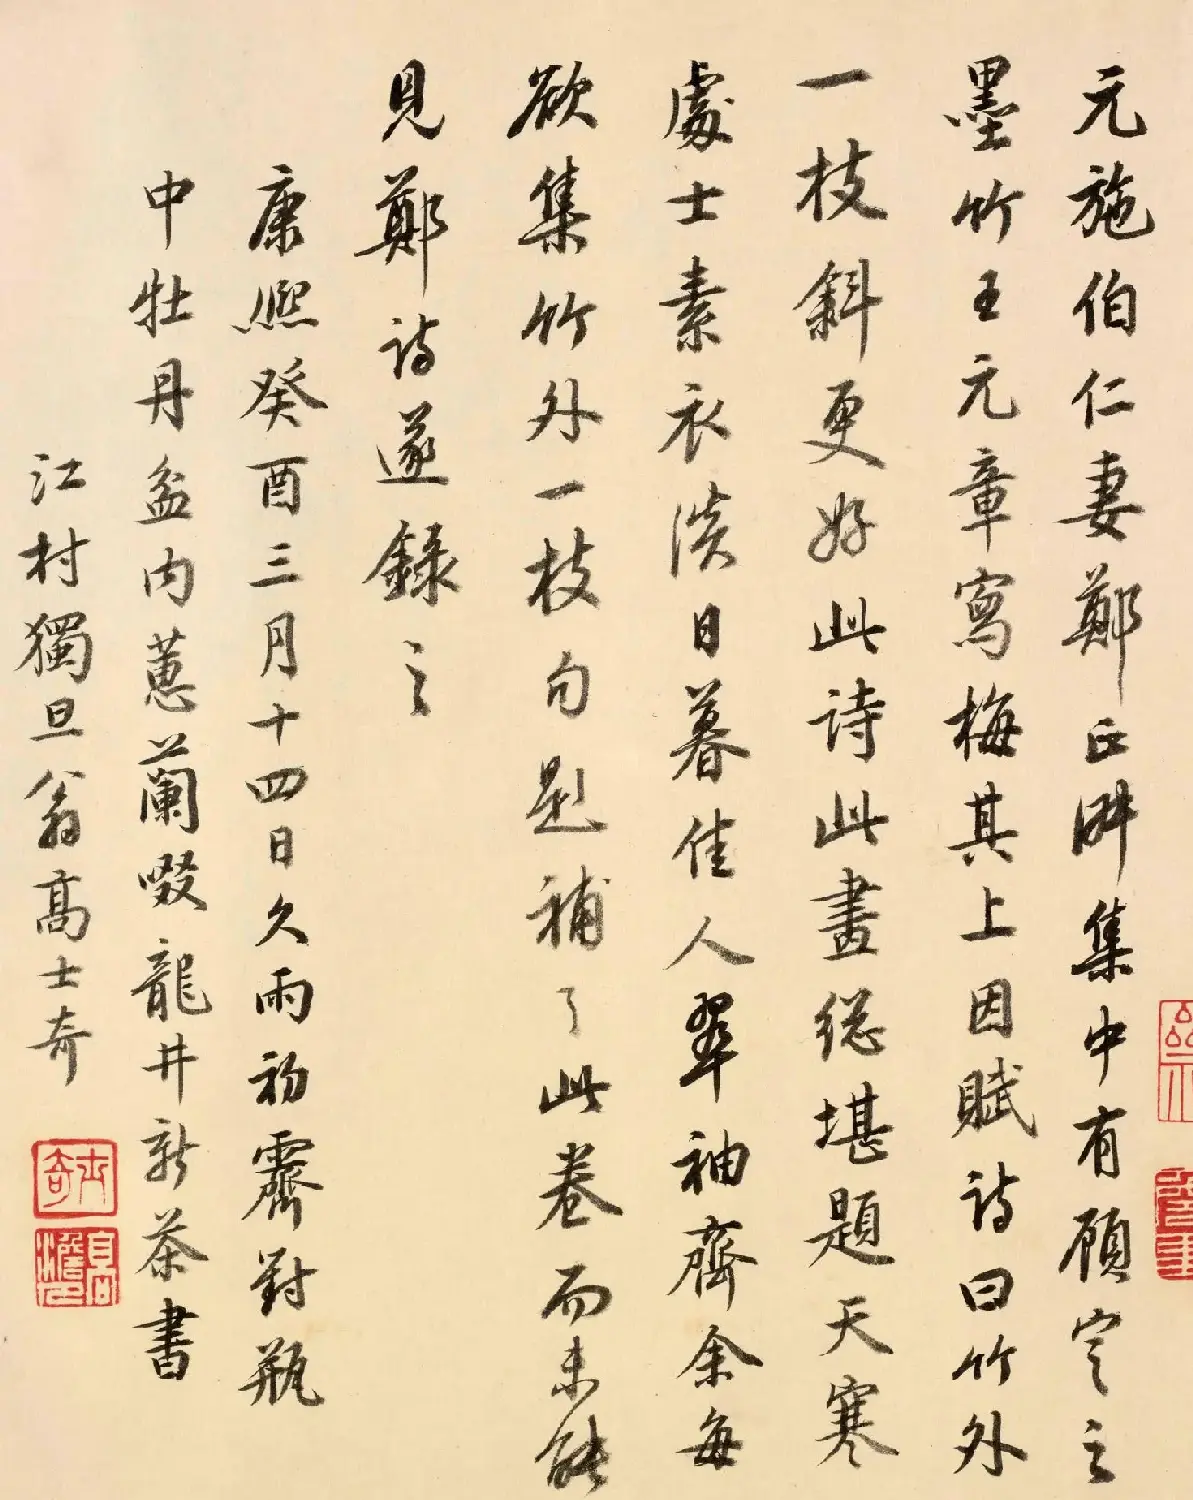 元施伯仁妻鄭氏肅集中有顧定之
墨竹王元章寫梅其上因賦詩曰竹外
一枝斜更好此詩此畫總堪題天寒
處士素衣淡日暮佳人翠袖齊余每
欲集竹外一枝句題補之此卷而未能
見鄭詩遂錄之
康熙癸酉三月十四日久雨初霽對瓶
中牡丹盆內蕙蘭啜龍井新茶書
江村獨旦翁高士奇
士奇
高澹人